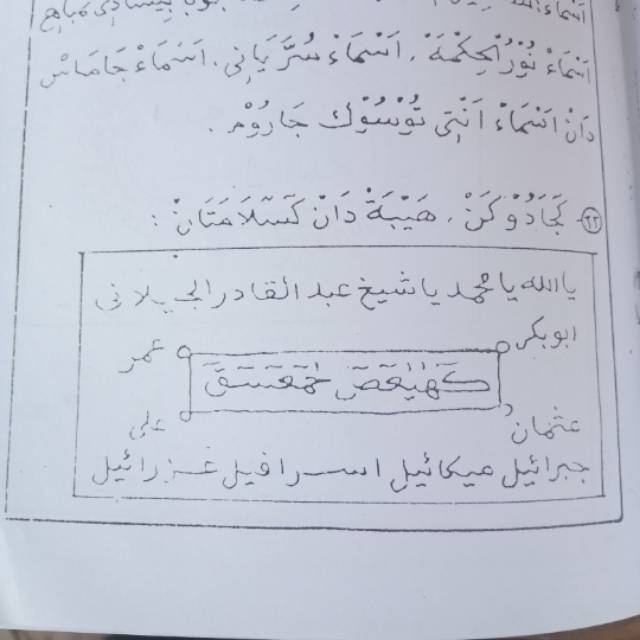 اَسْمَاءْ نُوْرُ الْحِكْمَةْ . اَسْمَاءْ سُرْيَانِى . اَسْمَاءْ جَامَاسْ
دَانْ اَسْمَاءْ اَنْتِى تُوْسُوْكْ جَارُوْمْ .
١٢ كَجَادُوْكَنْ . هَيْبَةْ دَانْ كَسَلَامَتَانْ :
يا الله يا محمد يا شيخ عبد القادر الجيلانى
ابوبكر عمر
كهيعص حمعسق
عثمان على
جبرائيل ميكائيل اسرافيل عزرائيل